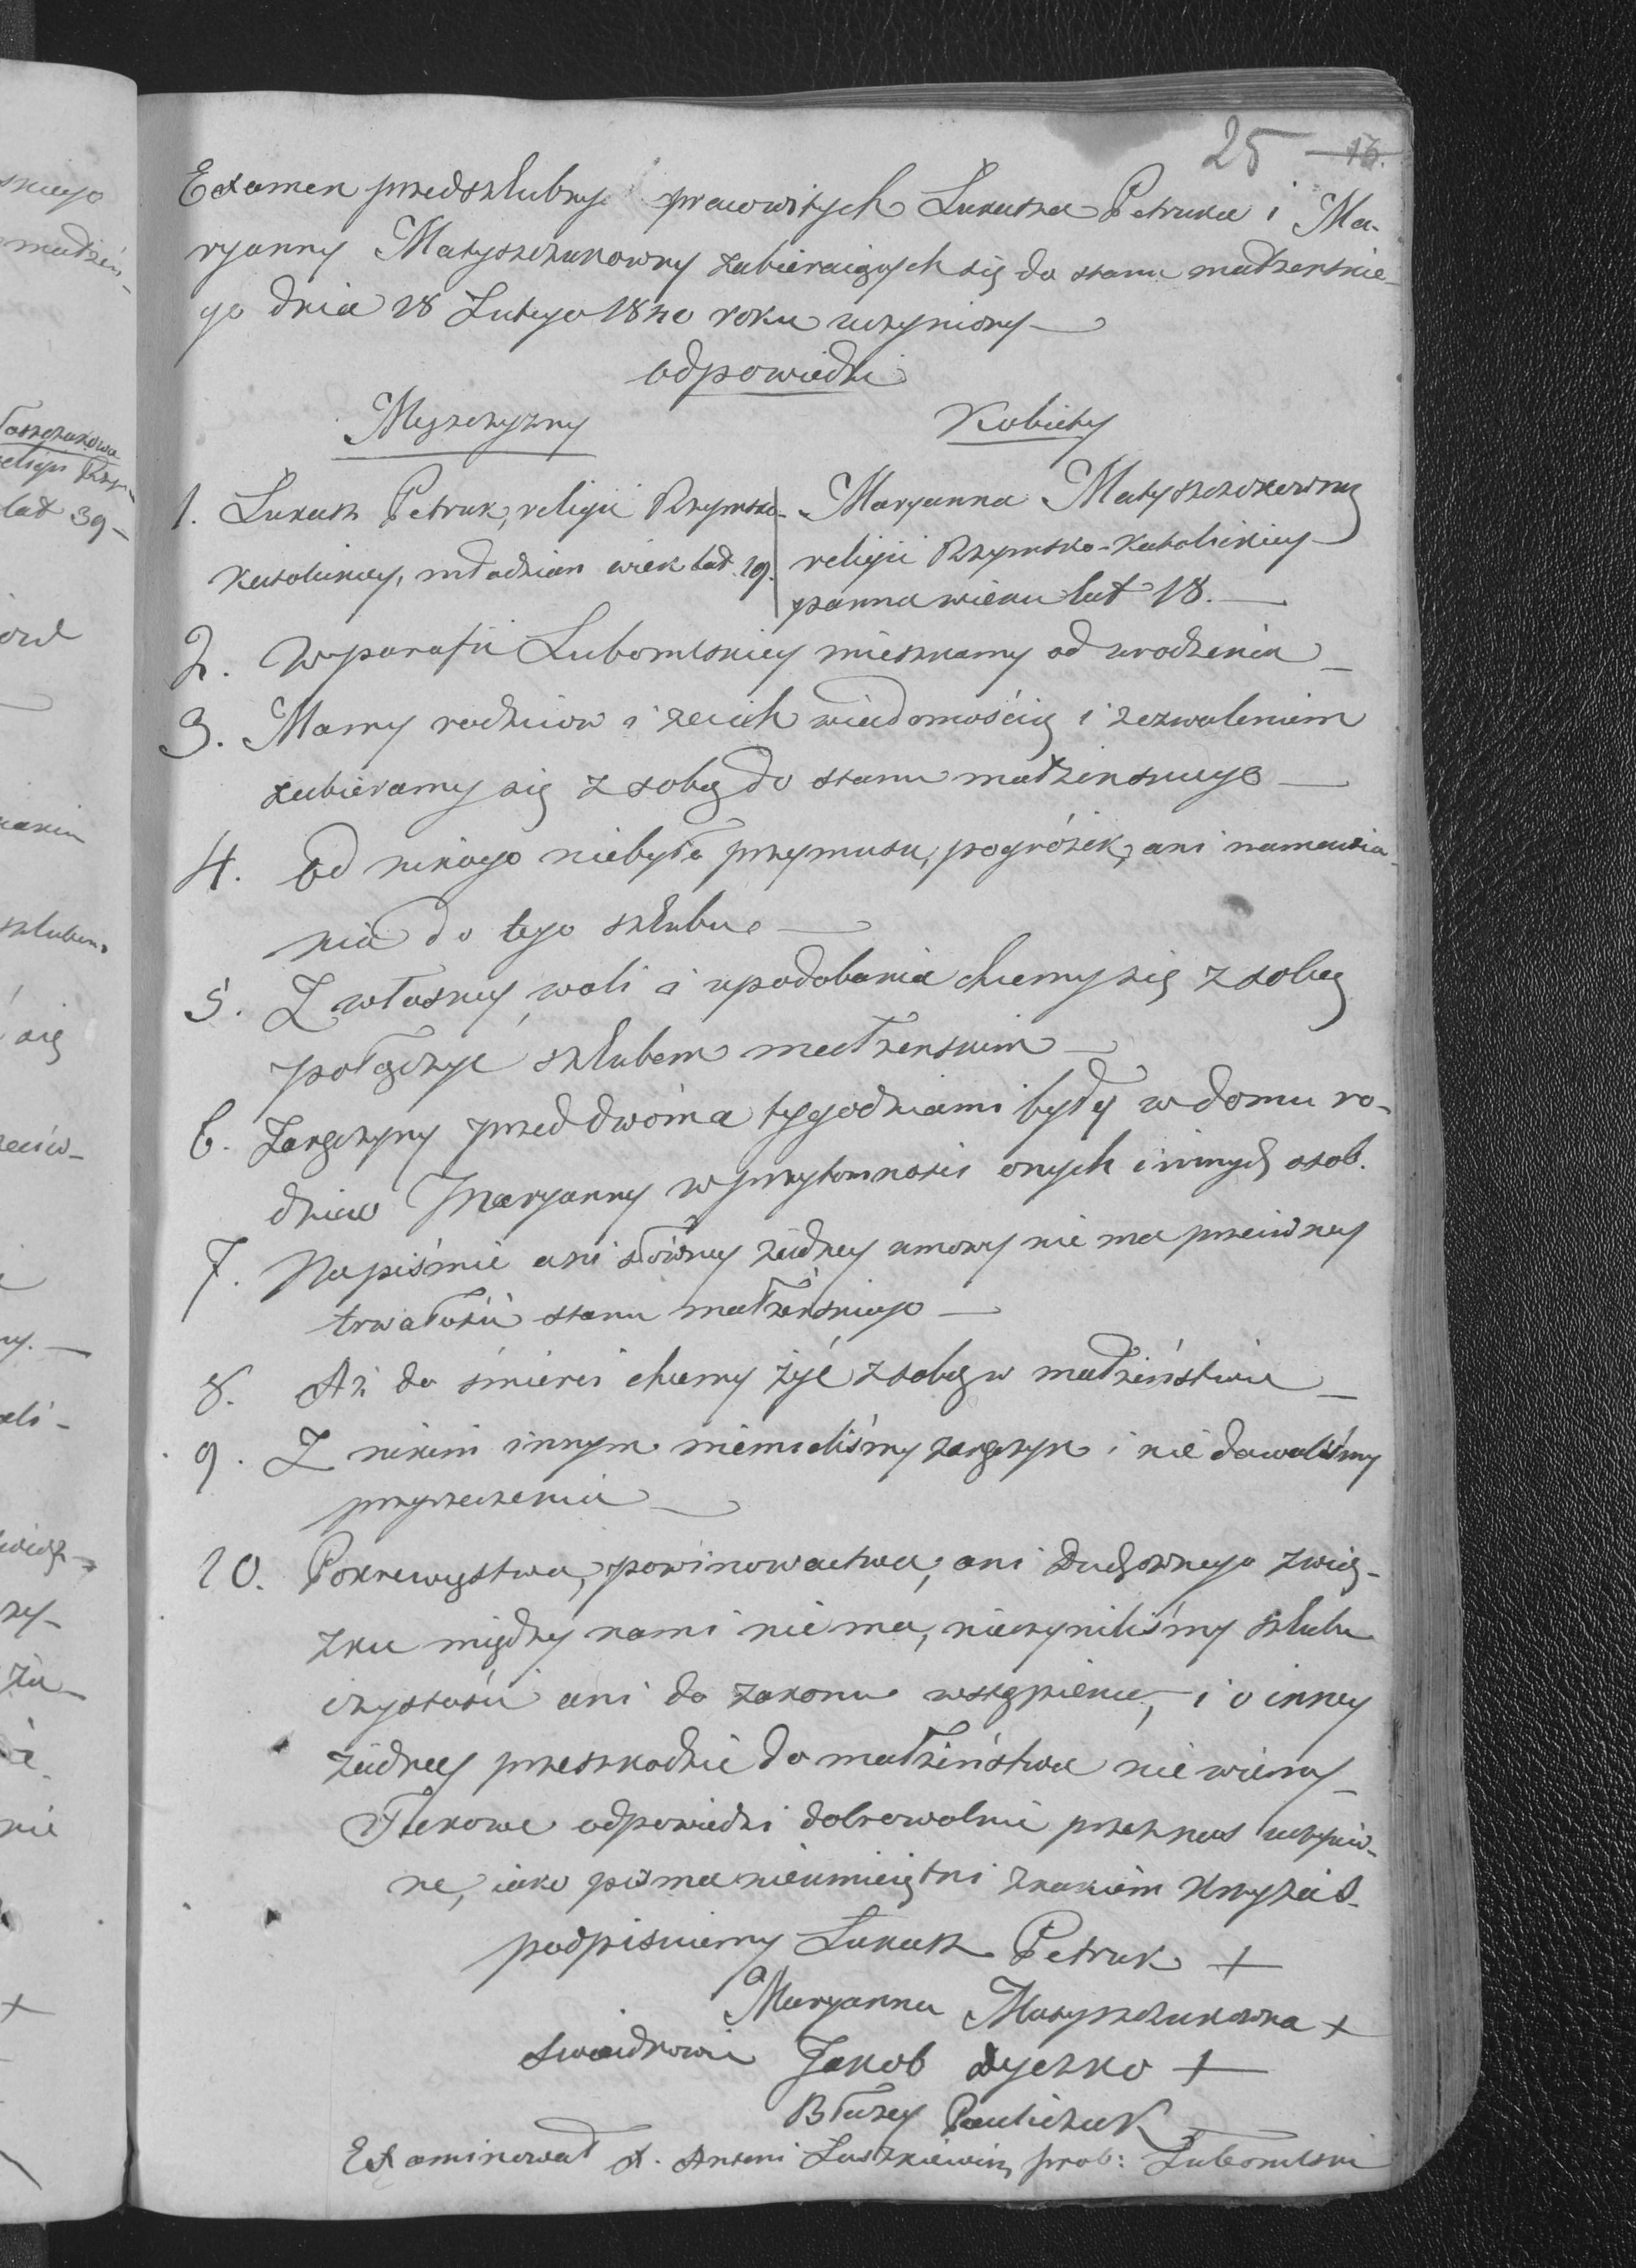 25 13.
Examen przedszlubny prawowitych Łukasza Petruka i Ma-
ryanny Matyszczukowny zabieraiących się do stanu małżenskie-
go dnia 18 Lutego 1840 roku uczyniony
odpowiedzi
Męzczyzny
Kobiety
1. Łukasz Petruk, religii Rzymsko-
katolickiey, młodzian wiek lat 19.
Maryanna Matyszczukowna
religii Rzymsko-Katolickiey
panna wieku lat 18.
2. W parafii Lubomlskiey mieszkamy od urodzenia
3. Mamy rodzicow i z ich wiadomością i zezwoleniem
zabieramy się z sobą do stanu małżenskiego
4. Od nikogo niebyło przymusu, pogróżek, ani namawia-
nia do tego szlubu
5. Z własney woli i upodobania chcemy się z sobą
połączyć szlubem małżenskim
6. Zaręczyny przed dwóma tygodniami były w domu ro-
dzicow Maryanny w przytomności onych i innych osob.
7. Na piśmie ani słówney żadney umowy nie ma przeciwney
trwałości stanu małżeńskiego
8. Aż do śmierci chcemy żyć z sobą w małżeństwie
9. Z nikim innym niemieliśmy zaręczyn i nie dawaliśmy
przyrzeczenia
10. Pokrewyństwa, powinowactwa, ani Duchownego zwią-
zku między nami nie ma, nieczyniliśmy szlubu
czystości ani do zakonu wstąpienia, i o inney
żadney przeszkodzie do małżeństwa nie wiemy
Takowe odpowiedzi dobrowolnie przez nas uczynio-
ne, iako pisma nieumieiętni znakiem Krzyża S.
podpisuiemy Łukasz Petruk +
Maryanna Matyszczukowna +
Swiadkowie Jakob Dyczko +
Błażey Pauliczuk
Examinował X. Antoni Laszkiewicz prob: Lubomlski